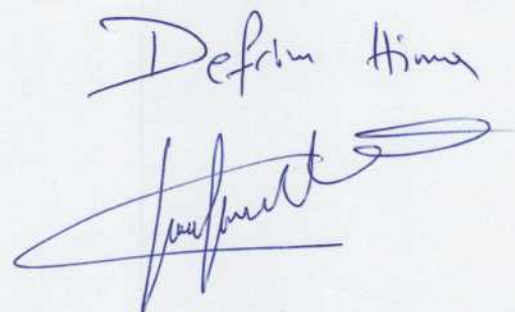 Defrim Hima